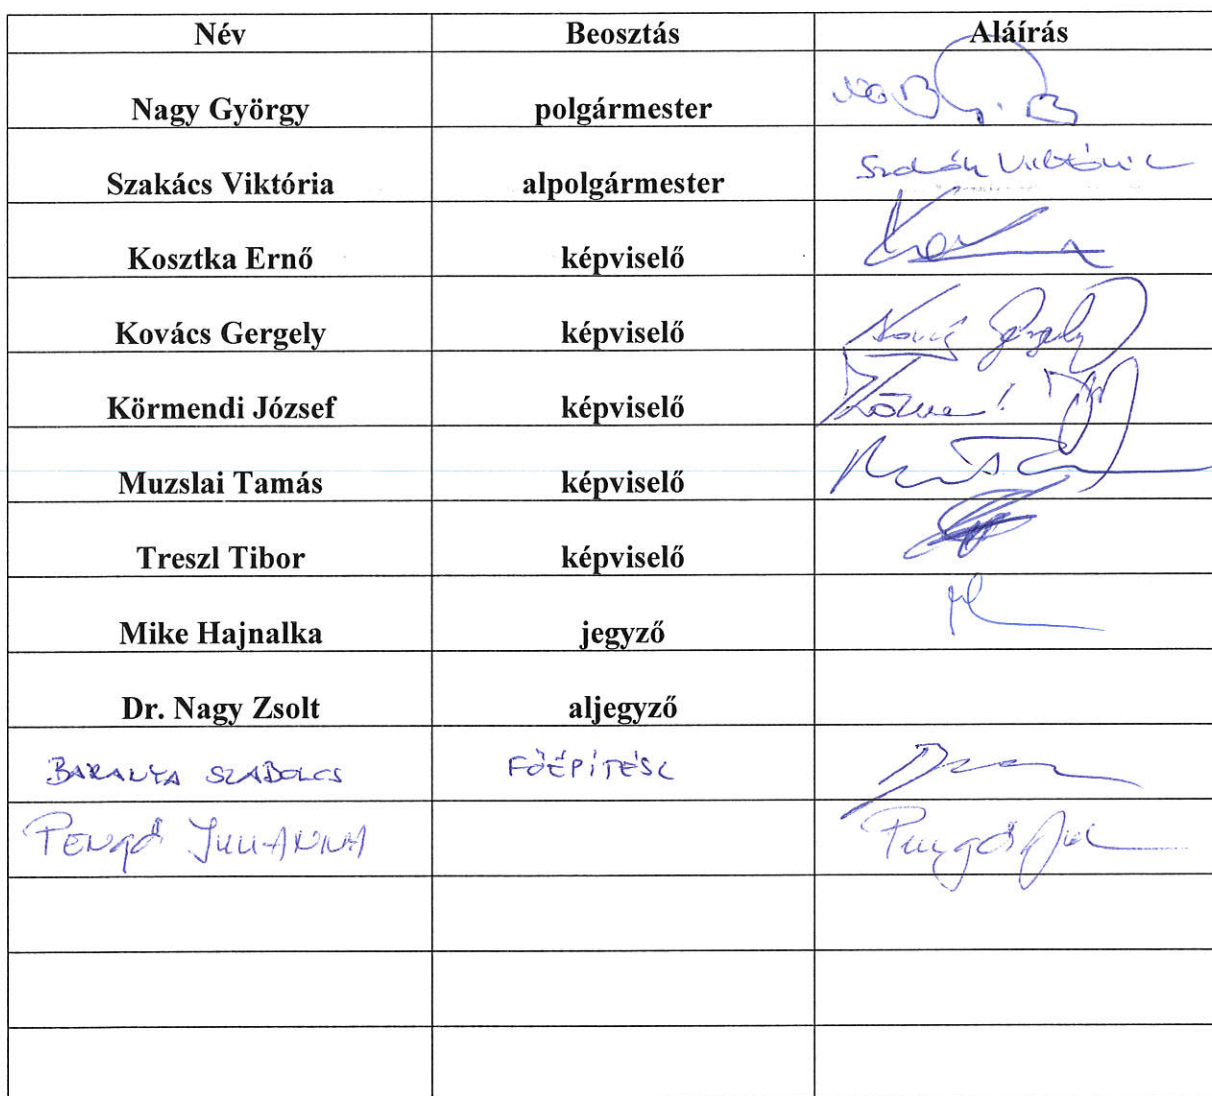 Név Beosztás Aláírás
Nagy György polgármester
Szakács Viktória alpolgármester Szakács Viktória
Kosztka Ernő képviselő
Kovács Gergely képviselő Kovács Gergely
Körmendi József képviselő
Muzslai Tamás képviselő
Treszl Tibor képviselő
Mike Hajnalka jegyző
Dr. Nagy Zsolt aljegyző
BARANYA SZABOLCS FŐÉPÍTÉSZ
PENGŐ JULIANNA Pengő